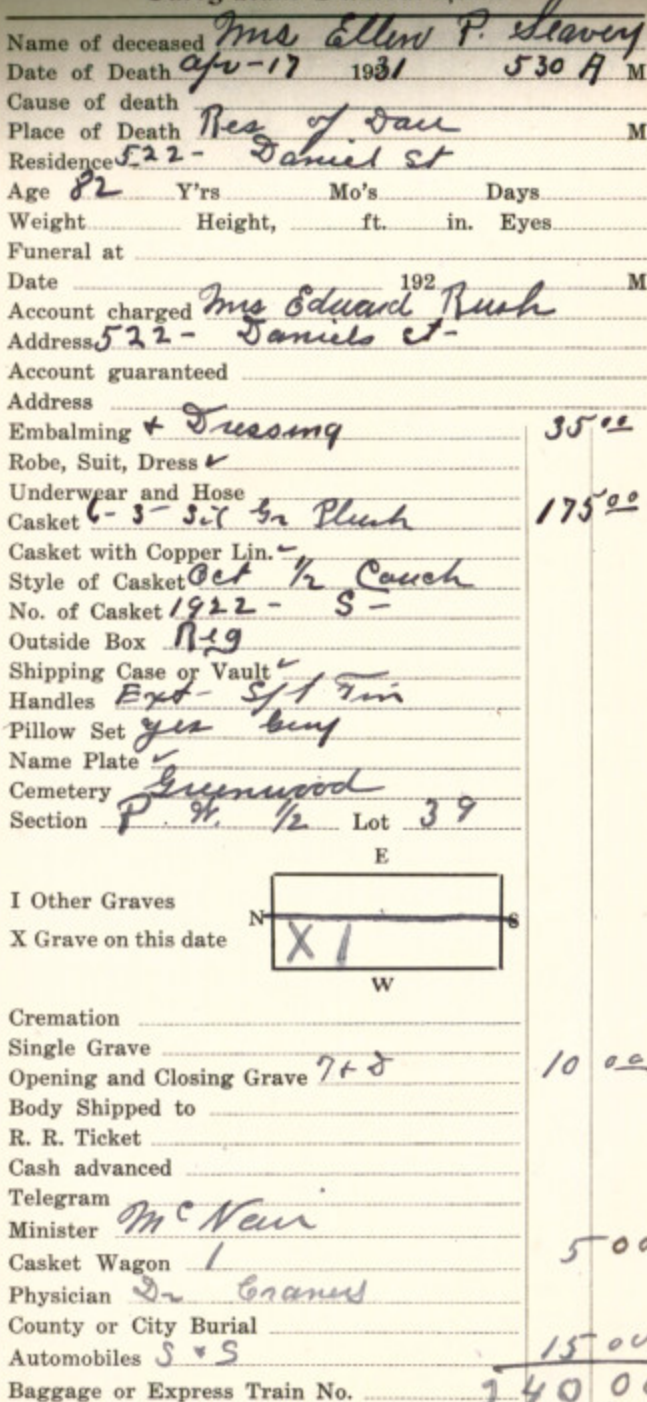 Name of deceased Mrs Ellen P. Seavey
Date of Death Apr-17 1931 530 A M
Cause of death
Place of Death Res of Dau M
Residence 522- Daniel St
Age 82 Y'rs Mo's Days
Weight Height, ft. in. Eyes
Funeral at
Date 192 M
Account charged Mrs Edward Rush
Address 522- Daniels St-
Account guaranteed
Address
Embalming + Dressing 35 00
Robe, Suit, Dress ✓
Underwear and Hose
Casket 6-3- Gr Plush 175 00
Casket with Copper Lin. ✓
Style of Casket Oct 1/2 Couch
No. of Casket 1922- S-
Outside Box Reg
Shipping Case or Vault ✓
Handles Ext-
Pillow Set yes
Name Plate ✓
Cemetery Greenwood
Section P. W. 1/2 Lot 39
E
I Other Graves
N S
X Grave on this date
X I
W
Cremation
Single Grave
Opening and Closing Grave 10 00
Body Shipped to
R. R. Ticket
Cash advanced
Telegram
Minister McNair
Casket Wagon 1 5 00
Physician Dr
County or City Burial
Automobiles S & S 15 00
Baggage or Express Train No. 240 00